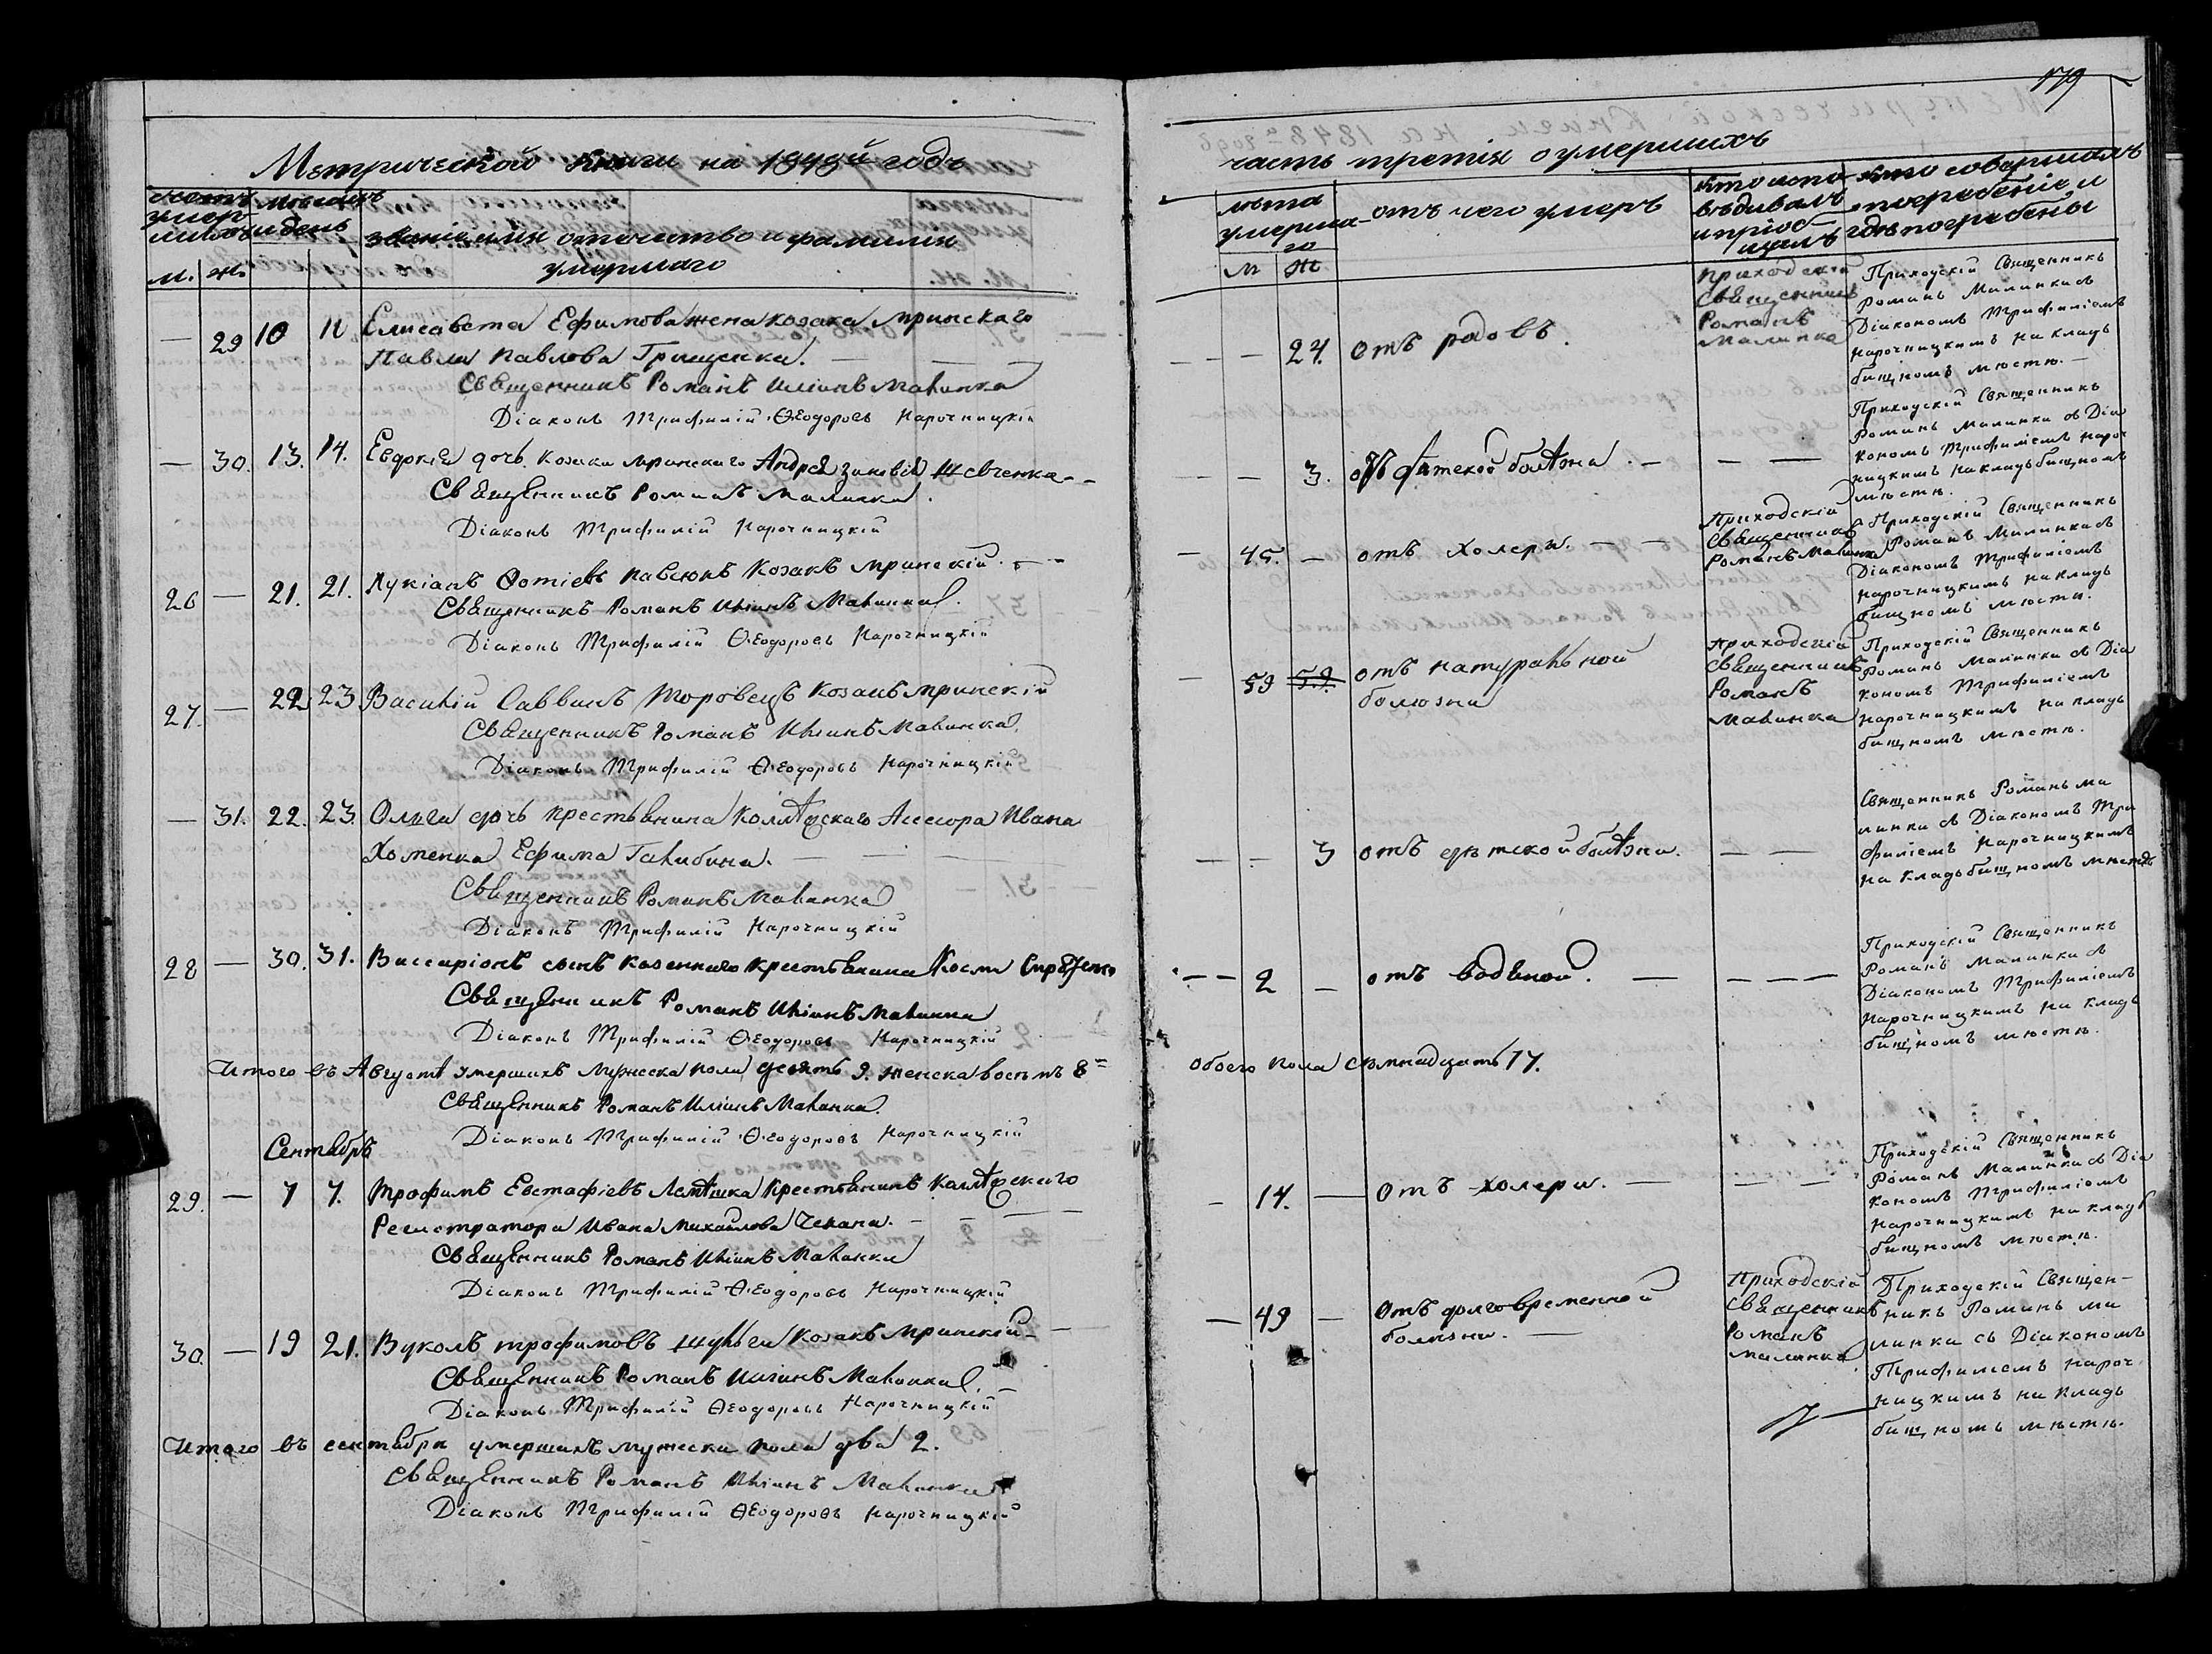 179
Метрической Книги на 1848й годъ
часть третія о умершихъ
Мѣсяцъ и день
званіе имя отечество и фамилія умершаго
м. ж.
лѣта умершаго
м ж
отъ чего умеръ
кто исповѣдывалъ и пріобщалъ
кто совершалъ погребеніе и гдѣ погребены
— 29 10 11 Елисавета Ефимова жена козака мринскаго
Павла Павлова Грищенка. —
Священникъ Романъ Иліинъ Малинка
Діаконъ Трифилій Ѳеодоровъ Нарочницкій
— — 24. отъ родовъ.
приходскій
Священникъ
Романъ
Малинка
Приходскій Священникъ
Романъ Малинка съ
Діакономъ Трифиліемъ
Нарочницкимъ на кладъ
бищномъ мѣстѣ. —
— 30. 13. 14. Евдокія дочь козака мринскаго Андрея Шевченка — —
Священникъ Романъ Малинка.
Діаконъ Трифилій Нарочницкій
— — 3. отъ дѣтской болѣзни. — — —
Приходскій Священникъ
Романъ Малинка съ Діа
кономъ Трифиліемъ Нароч
ницкимъ на кладьбищномъ
мѣстѣ.
26 — 21. 21. Лукіанъ Фотіевъ Павлюкъ козакъ мринскій. — —
Священникъ Романъ Иліинъ Малинка.
Діаконъ Трифилій Ѳеодоровъ Нарочницкій
— 45. — отъ холеры. — —
Приходскій
Священникъ
Романъ Малинка
Приходскій Священникъ
Романъ Малинка съ
Діакономъ Трифиліемъ
Нарочницкимъ на кладь
бищномъ мѣстѣ.
27. — 22 23 Василій Саввинъ Торовецъ козакъ мринскій
Священникъ Романъ Иліинъ Малинка.
Діаконъ Трифилій Ѳеодоровъ Нарочницкій
— 59 59. отъ натуральной
болѣзни
Приходскій
Священникъ
Романъ
Малинка
Приходскій Священникъ
Романъ Малинка съ Діа
кономъ Трифиліемъ
Нарочницкимъ на кладь
бищномъ мѣстѣ.
— 31. 22. 23. Ольга дочь крестьянина Коллѣжскаго Асессора Ивана
Хоменка Ефима Галибина. — — —
Священникъ Романъ Малинка
Діаконъ Трифилій Нарочницкій
— — 3 отъ дѣтской болѣзни. — —
Священникъ Романъ Ма
линка съ Діакономъ Три
филіемъ Нарочницкимъ
на кладьбищномъ мѣстѣ
28 — 30. 31. Виссаріонъ сынъ казеннаго крестьянина Косми
Священникъ Романъ Иліинъ Малинка
Діаконъ Трифилій Ѳеодоровъ Нарочницкій
— — 2 — отъ водяной. — — — —
Приходскій Священникъ
Романъ Малинка съ
Діакономъ Трифиліемъ
Нарочницкимъ на кладь
бищномъ мѣстѣ.
Итого въ Августѣ умершихъ мужеска пола девять 9. женска восемь 8
обоего пола семнадцать 17.
Священникъ Романъ Иліинъ Малинка.
Діаконъ Трифилій Ѳеодоровъ Нарочницкій
Сентябрь
29. — 7 7. Трофимъ Евстафіевъ Лемѣшка крестьянинъ Коллѣжскаго
Регистратора Ивана Михайлова Чекана. — — —
Священникъ Романъ Иліинъ Малинка
Діаконъ Трифилій Ѳеодоровъ Нарочницкій
— 14. — отъ холеры. — — —
Приходскій Священникъ
Романъ Малинка съ Діа
кономъ Трифиліемъ
Нарочницкимъ на кладь
бищномъ мѣстѣ.
30. — 19 21. Вуколъ Трофимовъ Шульга козакъ мринскій — —
Священникъ Романъ Иліинъ Малинка. —
Діаконъ Трифилій Ѳеодоровъ Нарочницкій
— 49 — Отъ долговременной
болѣзни. —
Приходскій
Священникъ
Романъ
Малинка
Приходскій Священ-
никъ Романъ Ма
линка съ Діакономъ
Трифиліемъ Нароч
ницкимъ на кладь
бищномъ мѣстѣ.
Итого въ сентябрѣ умершихъ мужеска пола два 2.
Священникъ Романъ Иліинъ Малинка
Діаконъ Трифилій Ѳеодоровъ Нарочницкій